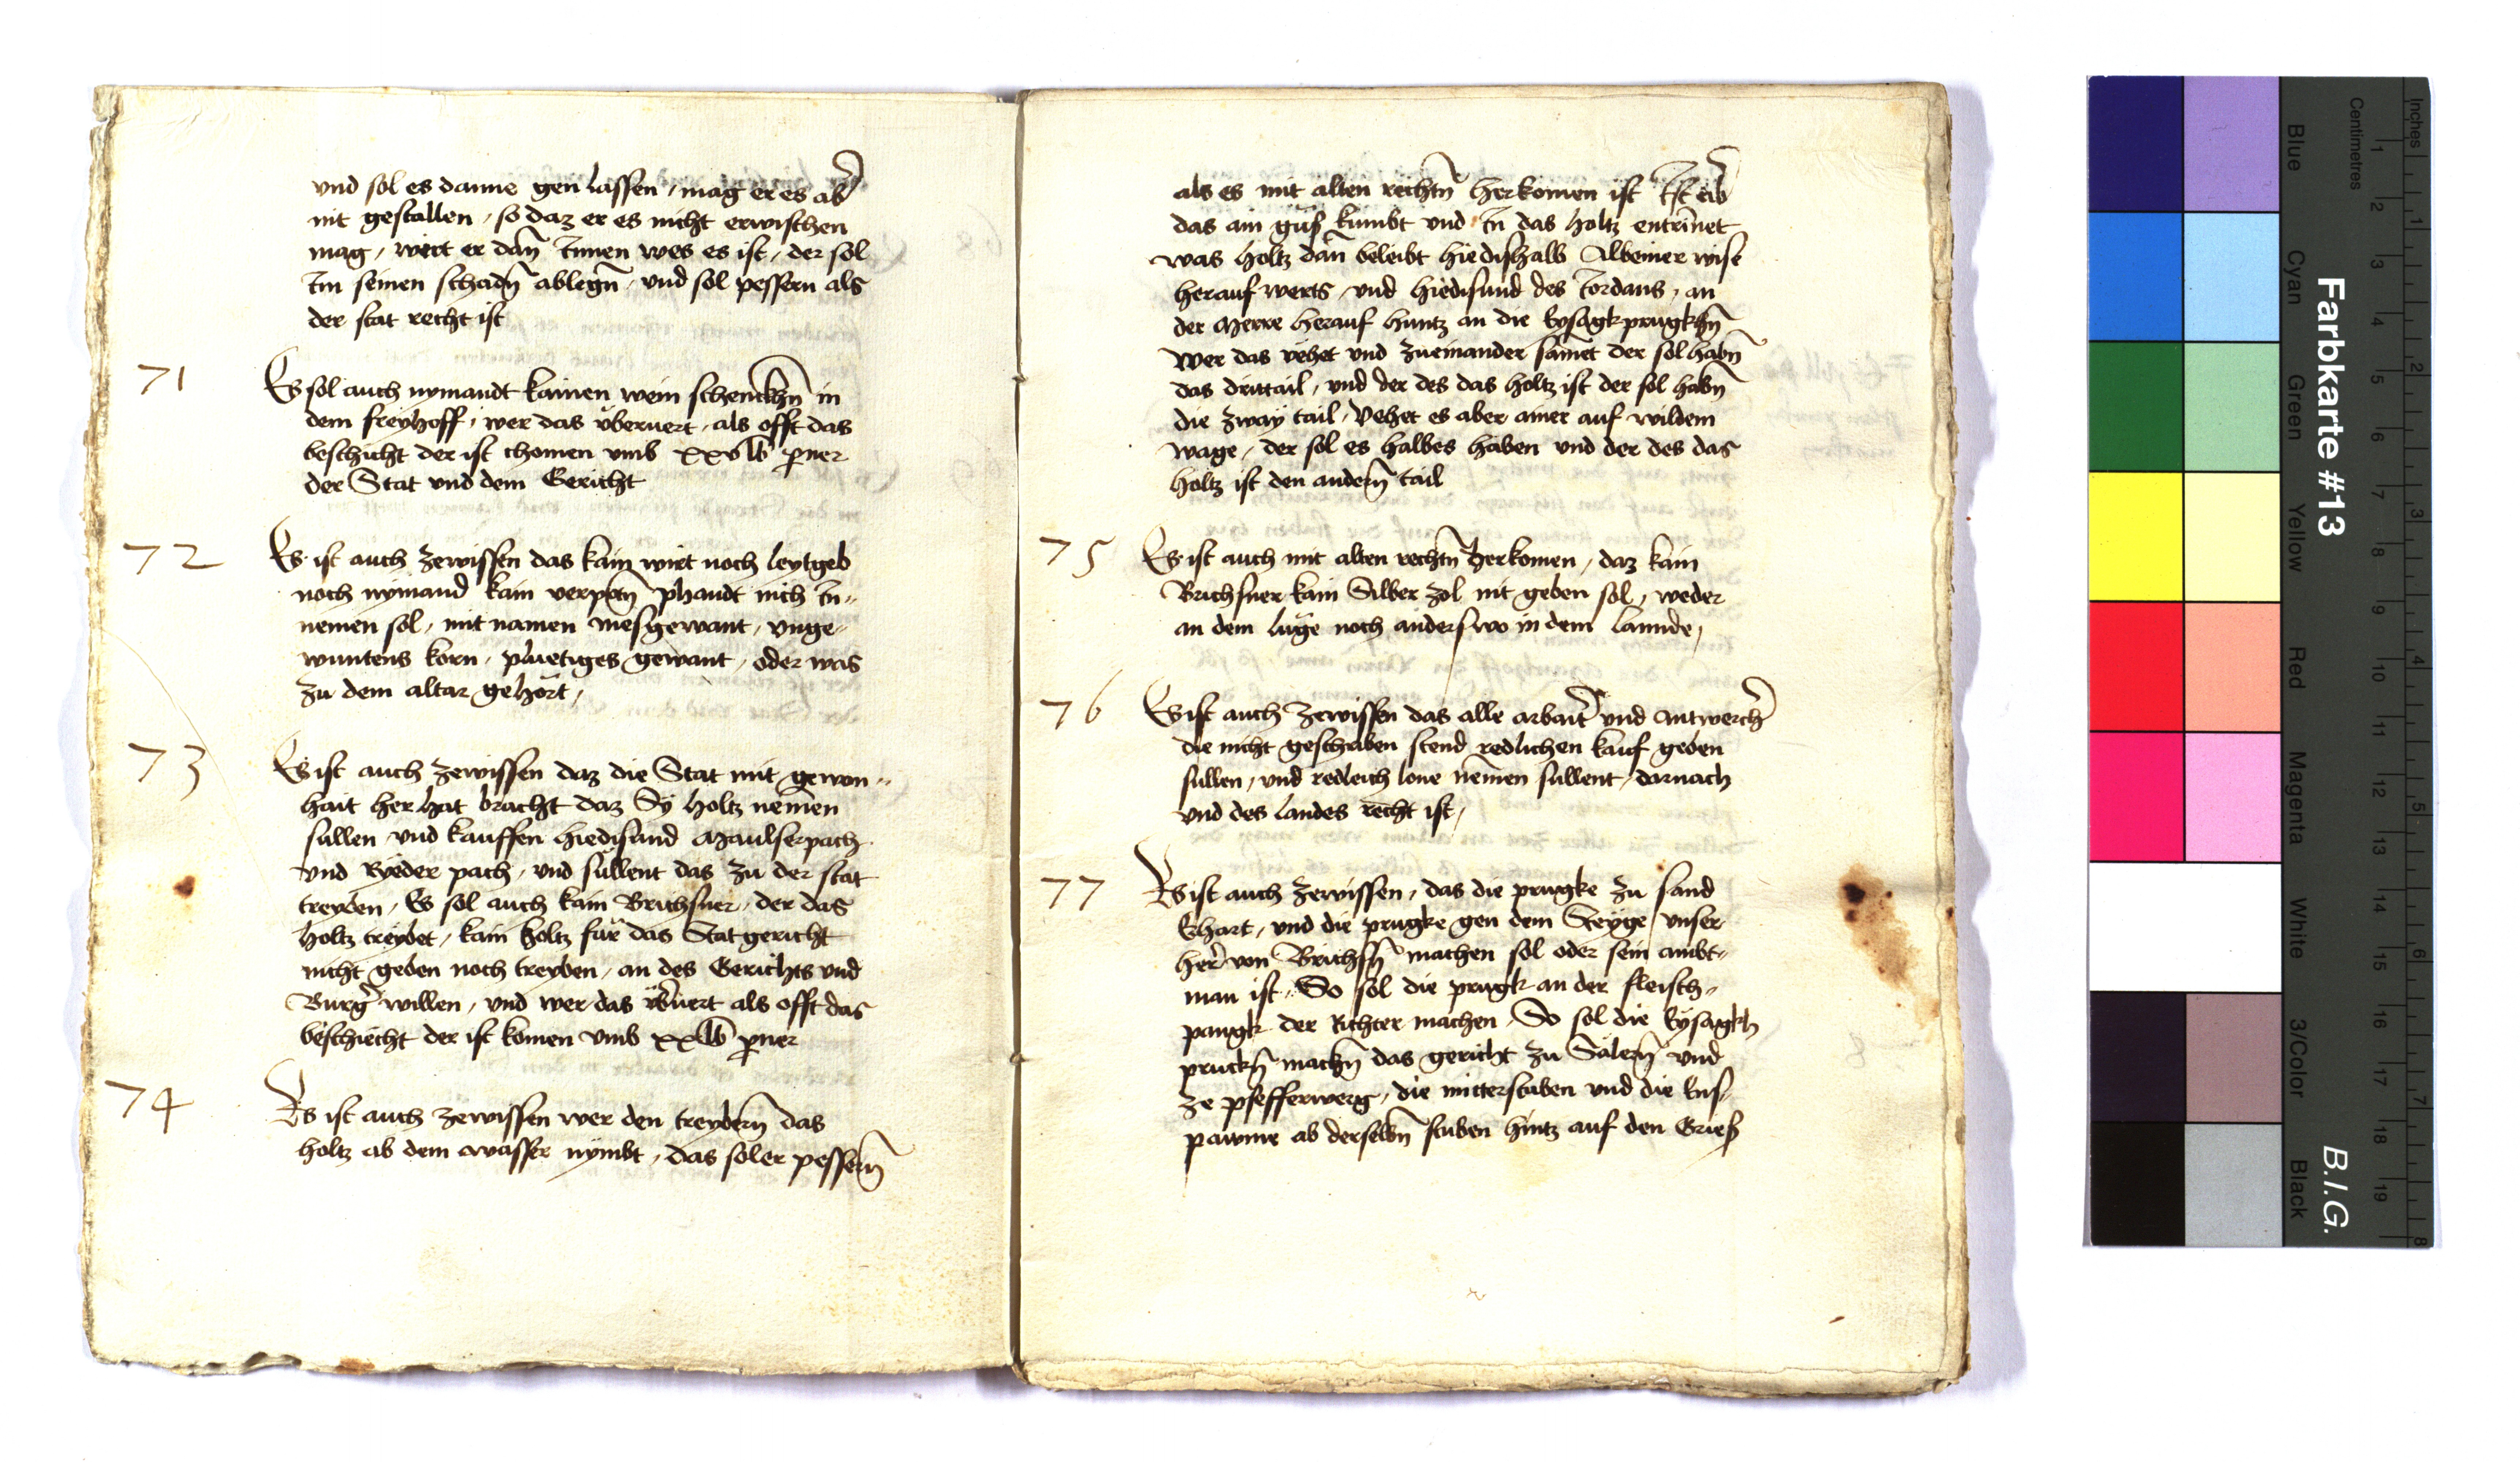 und sol es danne gen lassen / mag er es ab̄
nit gestallen / so daz er es nicht erwischen
mag / wirt er dan̄ Innen wes es ist / der sol
Im seinen schadn̄ ablegn̄ / und sol pessern als
der stat recht ist
71
Es sol auch nymandt kainen wein schenckhn̄ in
dem freyhoff / wer das überuert / als offt das
beschicht der ist chomen umb xxv lb perner
der Stat und dem Gericht
72
Es ist auch zewissen das kain wirt noch leytgeb
noch nymand kain verpotn̄ phandt nich In-
nemen sol / mit namen mesgewant / unge-
wuntens korn / pluetiges gewant / oder was
zu dem altar gehört /
73
Es ist auch zewissen daz die Stat mit gewon-
hait her hat bracht daz Sy holtz nemen
sullen und kauffen hiedisand Maulserpach
und Ryeder pach / und süllent das zu der stat
treyben / Es sol auch kain Brichsner / der das
holtz treybet / kain holtz für das Statgericht
nicht geben noch treyben / an des Gerichts und
Burḡ willen / und wer das üb̄uert als offt das
beschiecht der ist komen umb xx lb perner
74
Es ist auch zewissen wer den treybern̄ das
holtz ab dem wasser nymbt / das sol er pessern̄
als es mit alten rechtn̄ herkomen ist Ist ab̄
das ain güß kumbt und In das holtz entrinnet
was holtz dan beleibt hiedishalb Albeiner wise
herauf werts / und hiedisund des Jordans / an
der Merre herauf huntz an die Eysagkprugkhn̄
wer das vehet und zueinander samet der sol habn̄
das drittail / und der des das holtz ist der sol habn̄
die zway tail / Vehet es aber ainer auf wildem
wage / der sol es halbes haben und der des das
holtz ist den andern̄ tail
75
Es ist auch mit alten rechtn̄ herkomen / daz kain
Brichsner kain Silber zol nit geben sol / weder
an dem luge noch anderswo in dem lannde /
76
Es ist auch zewissen das alle arbait̄ und antwerch̄
die nicht geschriben stend redlichen kauf geben
sullen / und redleich lone nemen sullent / darnach
und des landes recht ist /
77
Es ist auch zewissen / das die prugke zu sand
Erhart / und die prugke gen dem Steyge / unser
her̄ von Brichsn̄ machen sol oder sein ambt-
man ist / So sol die prugk an der fleisch-
pangk der Richter machen / So sol die Eysagkh
pruckn̄ machn̄ das gericht zu Salern̄ und
ze pfefferwerg / die mitterstuben und die Ens-
pawme ab derselbn̄ stuben hintz auf den Grieß
Farbkarte #13
B.I.G.
Inches
Centimetres
1 2 3 4 5 6 7 8 9 10 11 12 13 14 15 16 17 18 19
1 2 3 4 5 6 7 8
Blue
Cyan
Green
Yellow
Red
Magenta
White
3/Color
Black